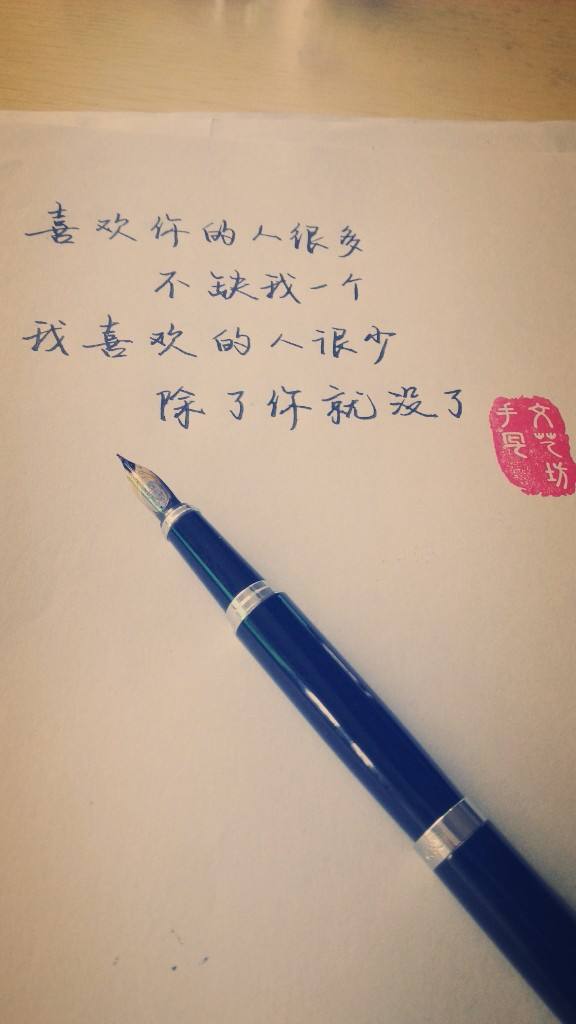 喜欢你的人很多
不缺我一个
我喜欢的人很少
除了你就没了
文艺坊
手写